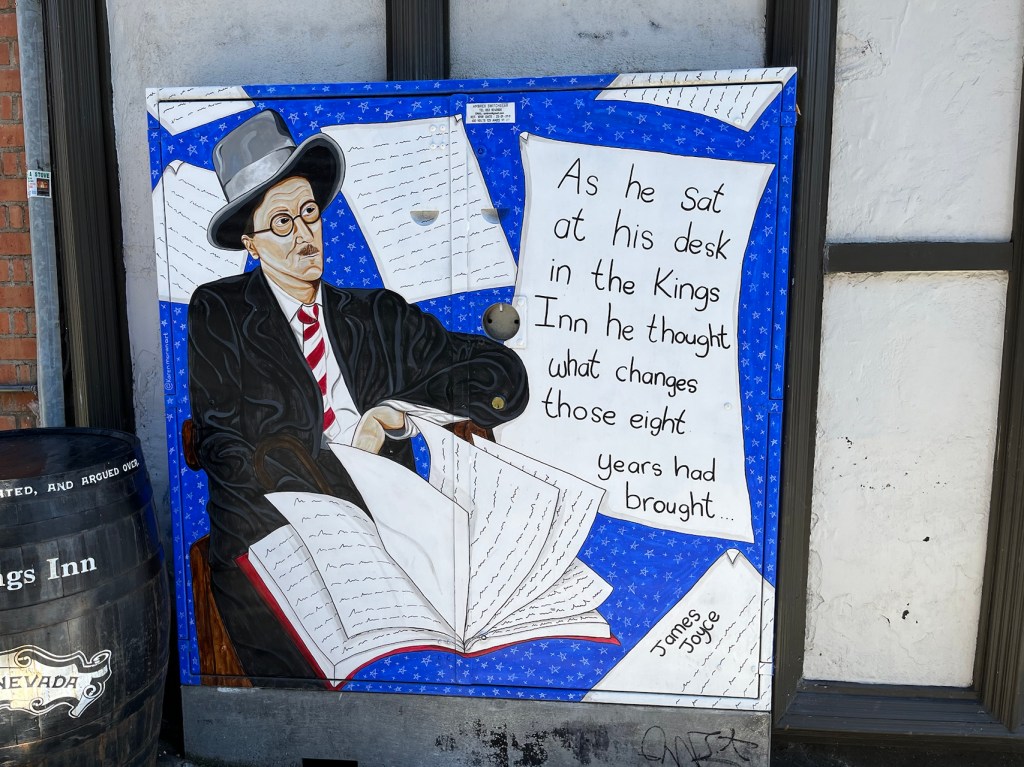 As he sat
at his desk
in the Kings
Inn he thought
what changes
those eight
years had
brought...
James
Joyce
ATED, AND ARGUED OVER.
ngs Inn
NEVADA